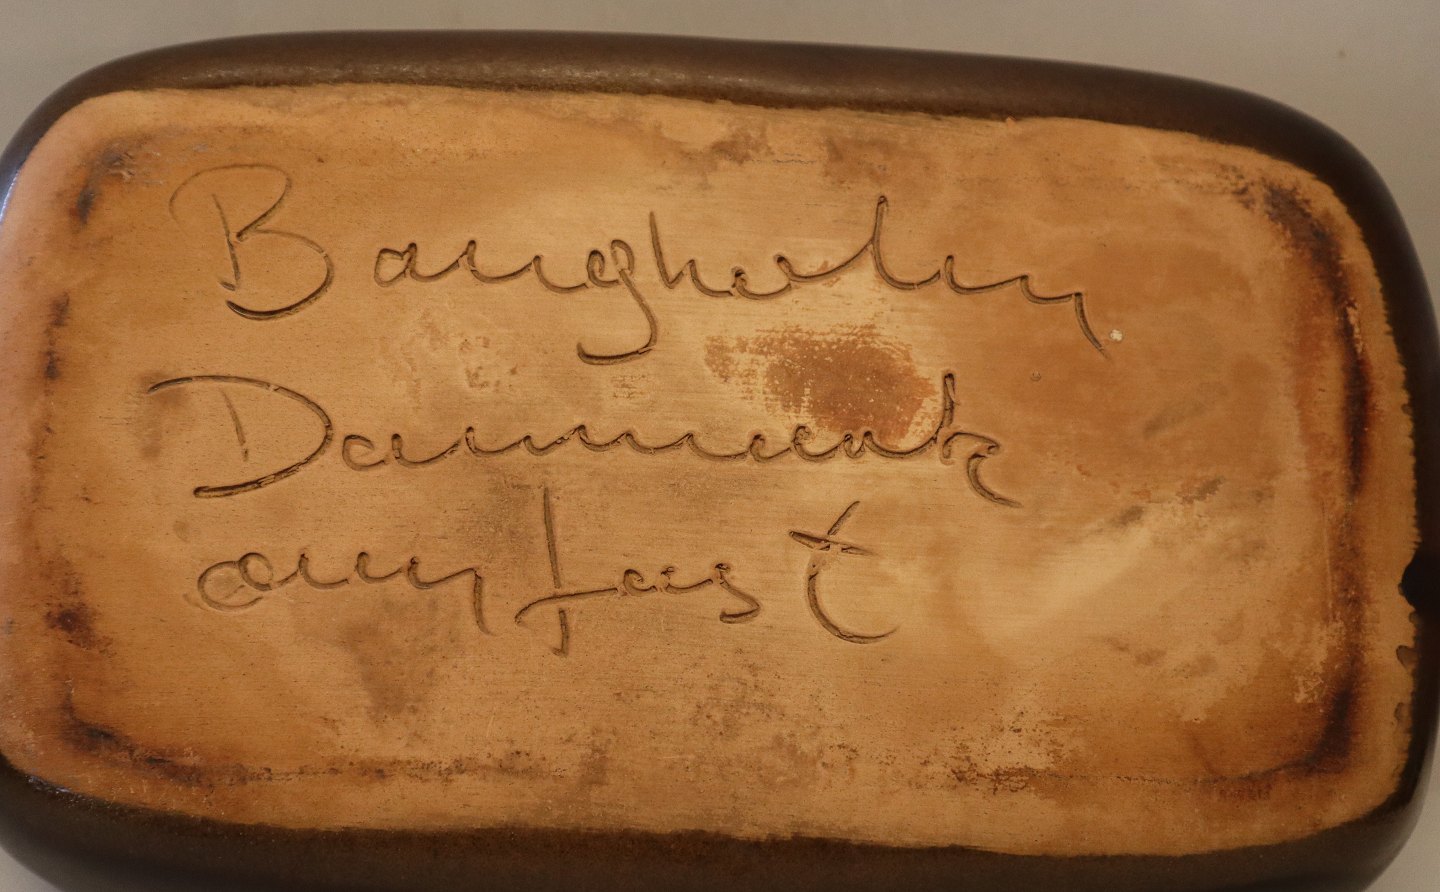 Bangholm
Danmark
ovnfast